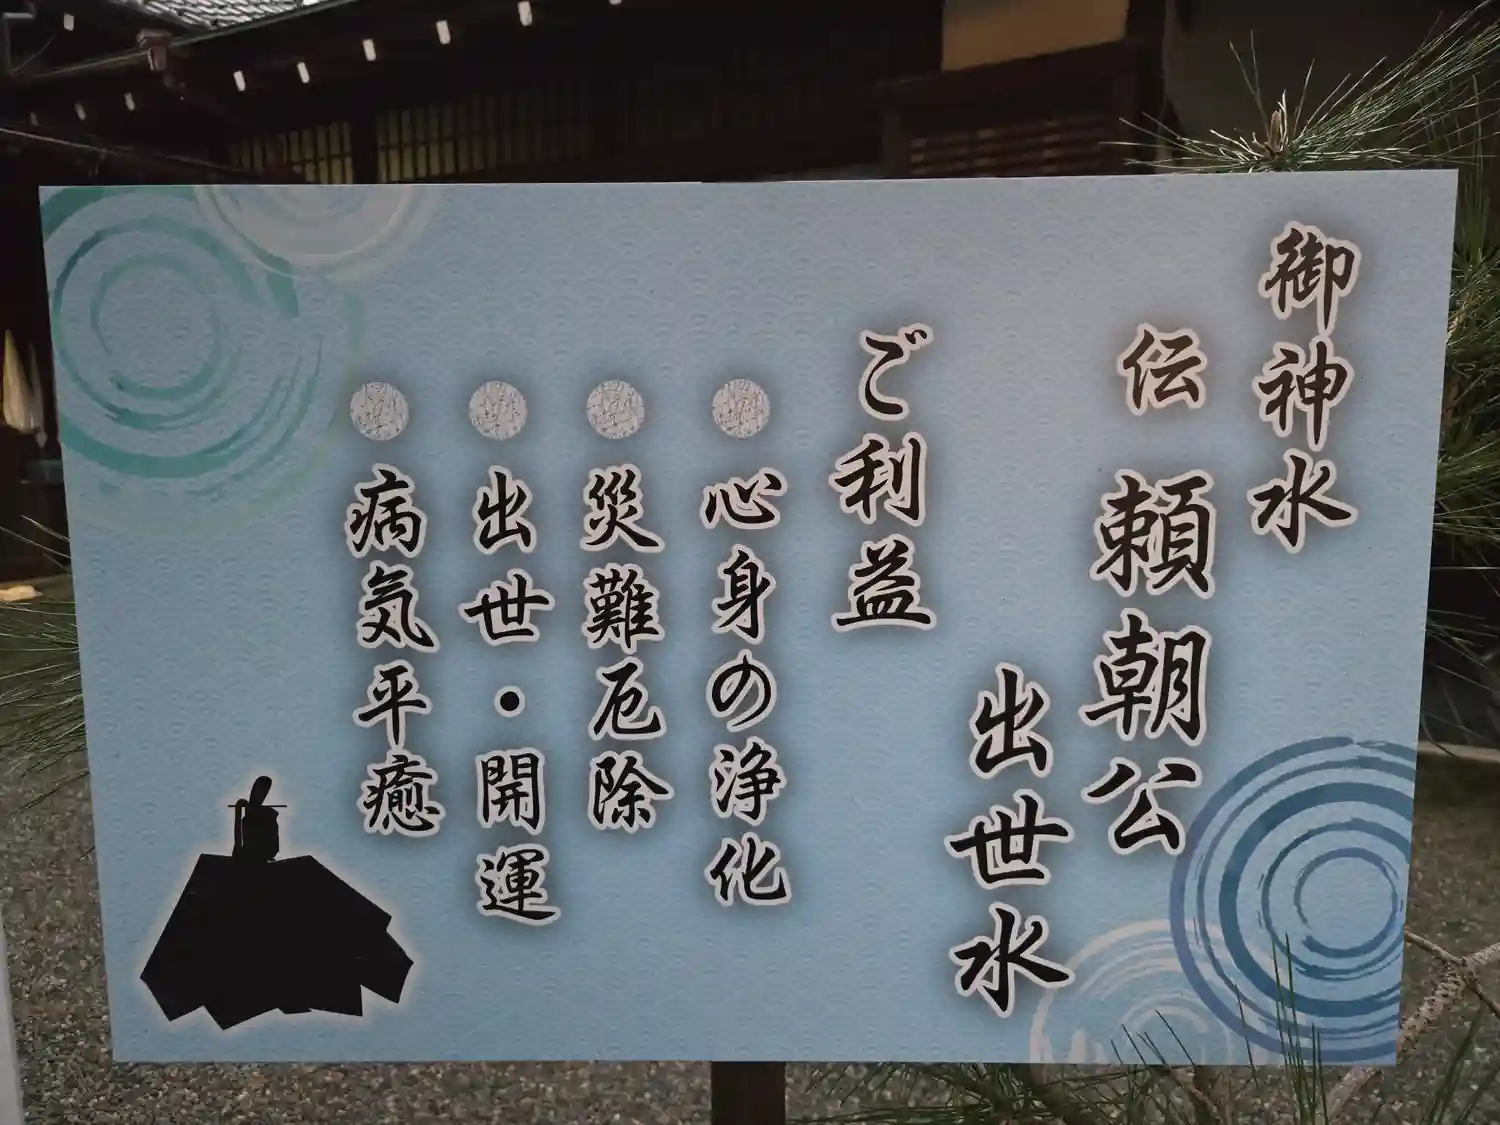 御神水
伝 頼朝公
出世水
ご利益
心身の浄化
災難厄除
出世・開運
病気平癒